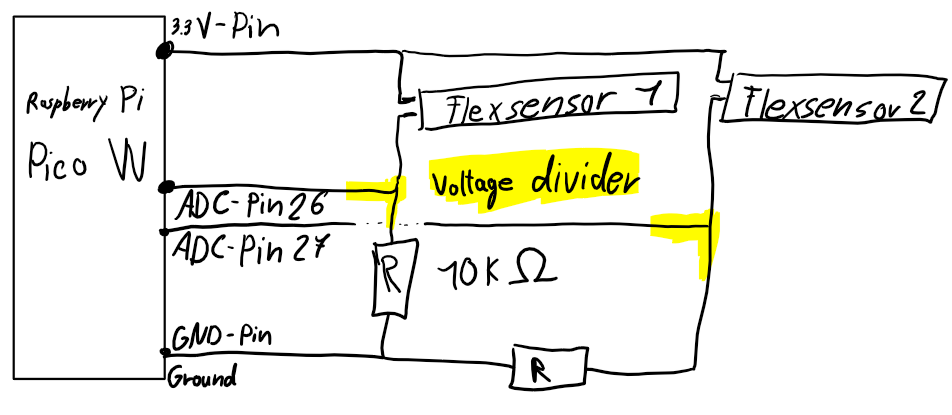 3.3 V-Pin
Raspberry Pi
Pico W
Flexsensor 1
Flexsensor 2
Voltage divider
ADC-Pin 26
ADC-Pin 27
R
10K Ω
GND-Pin
Ground
R